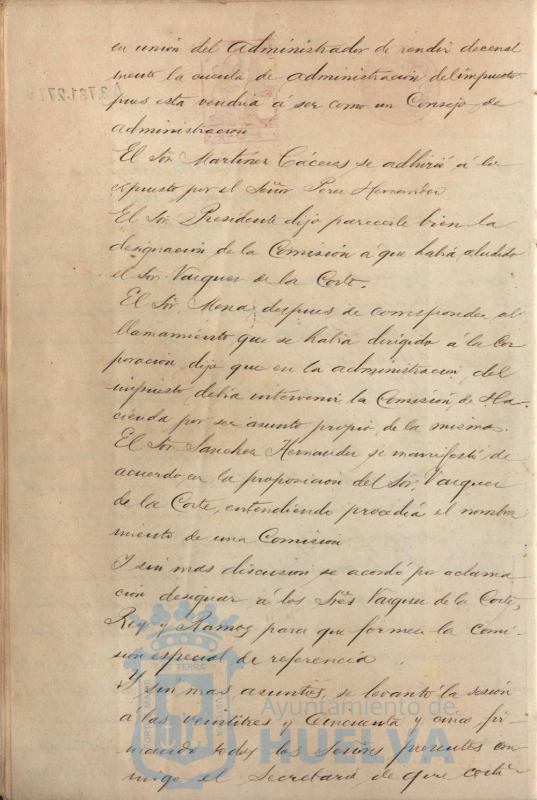 en unión del Administrador de rendir decenal
mente la cuenta de administración del impuesto
pues esta vendria á ser como un Consejo de
administracion
El Sor. Martinez Cáceres se adhirió á lo
expuesto por el Señor Perez Hernandez
El Sor. Presidente dijo parecerle bien la
designación de la Comisión á que habia aludido
el Sor. Vazquez de la Corte.
El Sor. Mena, despues de corresponder al
llamamiento que se habia dirigido á la Cor
poración, dijo que en la administracion del
impuesto, debia intervenir la Comisión de Ha-
cienda por ser asunto propio de la misma.
El Sor. Sanchez Hernandez se manifestó de
acuerdo en la proposicion del Sor. Vazquez
de la Corte, entendiendo procedia el nombra
miento de una Comisión
Y sin mas discusion se acordó por aclama
ción designar á los Sres Vazquez de la Corte,
Rey y Ramos para que formen la Comi-
sión especial de referencia.
Y sin mas asuntos, se levantó la sesión
á las veintitres y cincuenta y cinco fir-
mando todos los Señores presentes con-
migo el Secretario, de que certifº
Ayuntamiento de
HUELVA